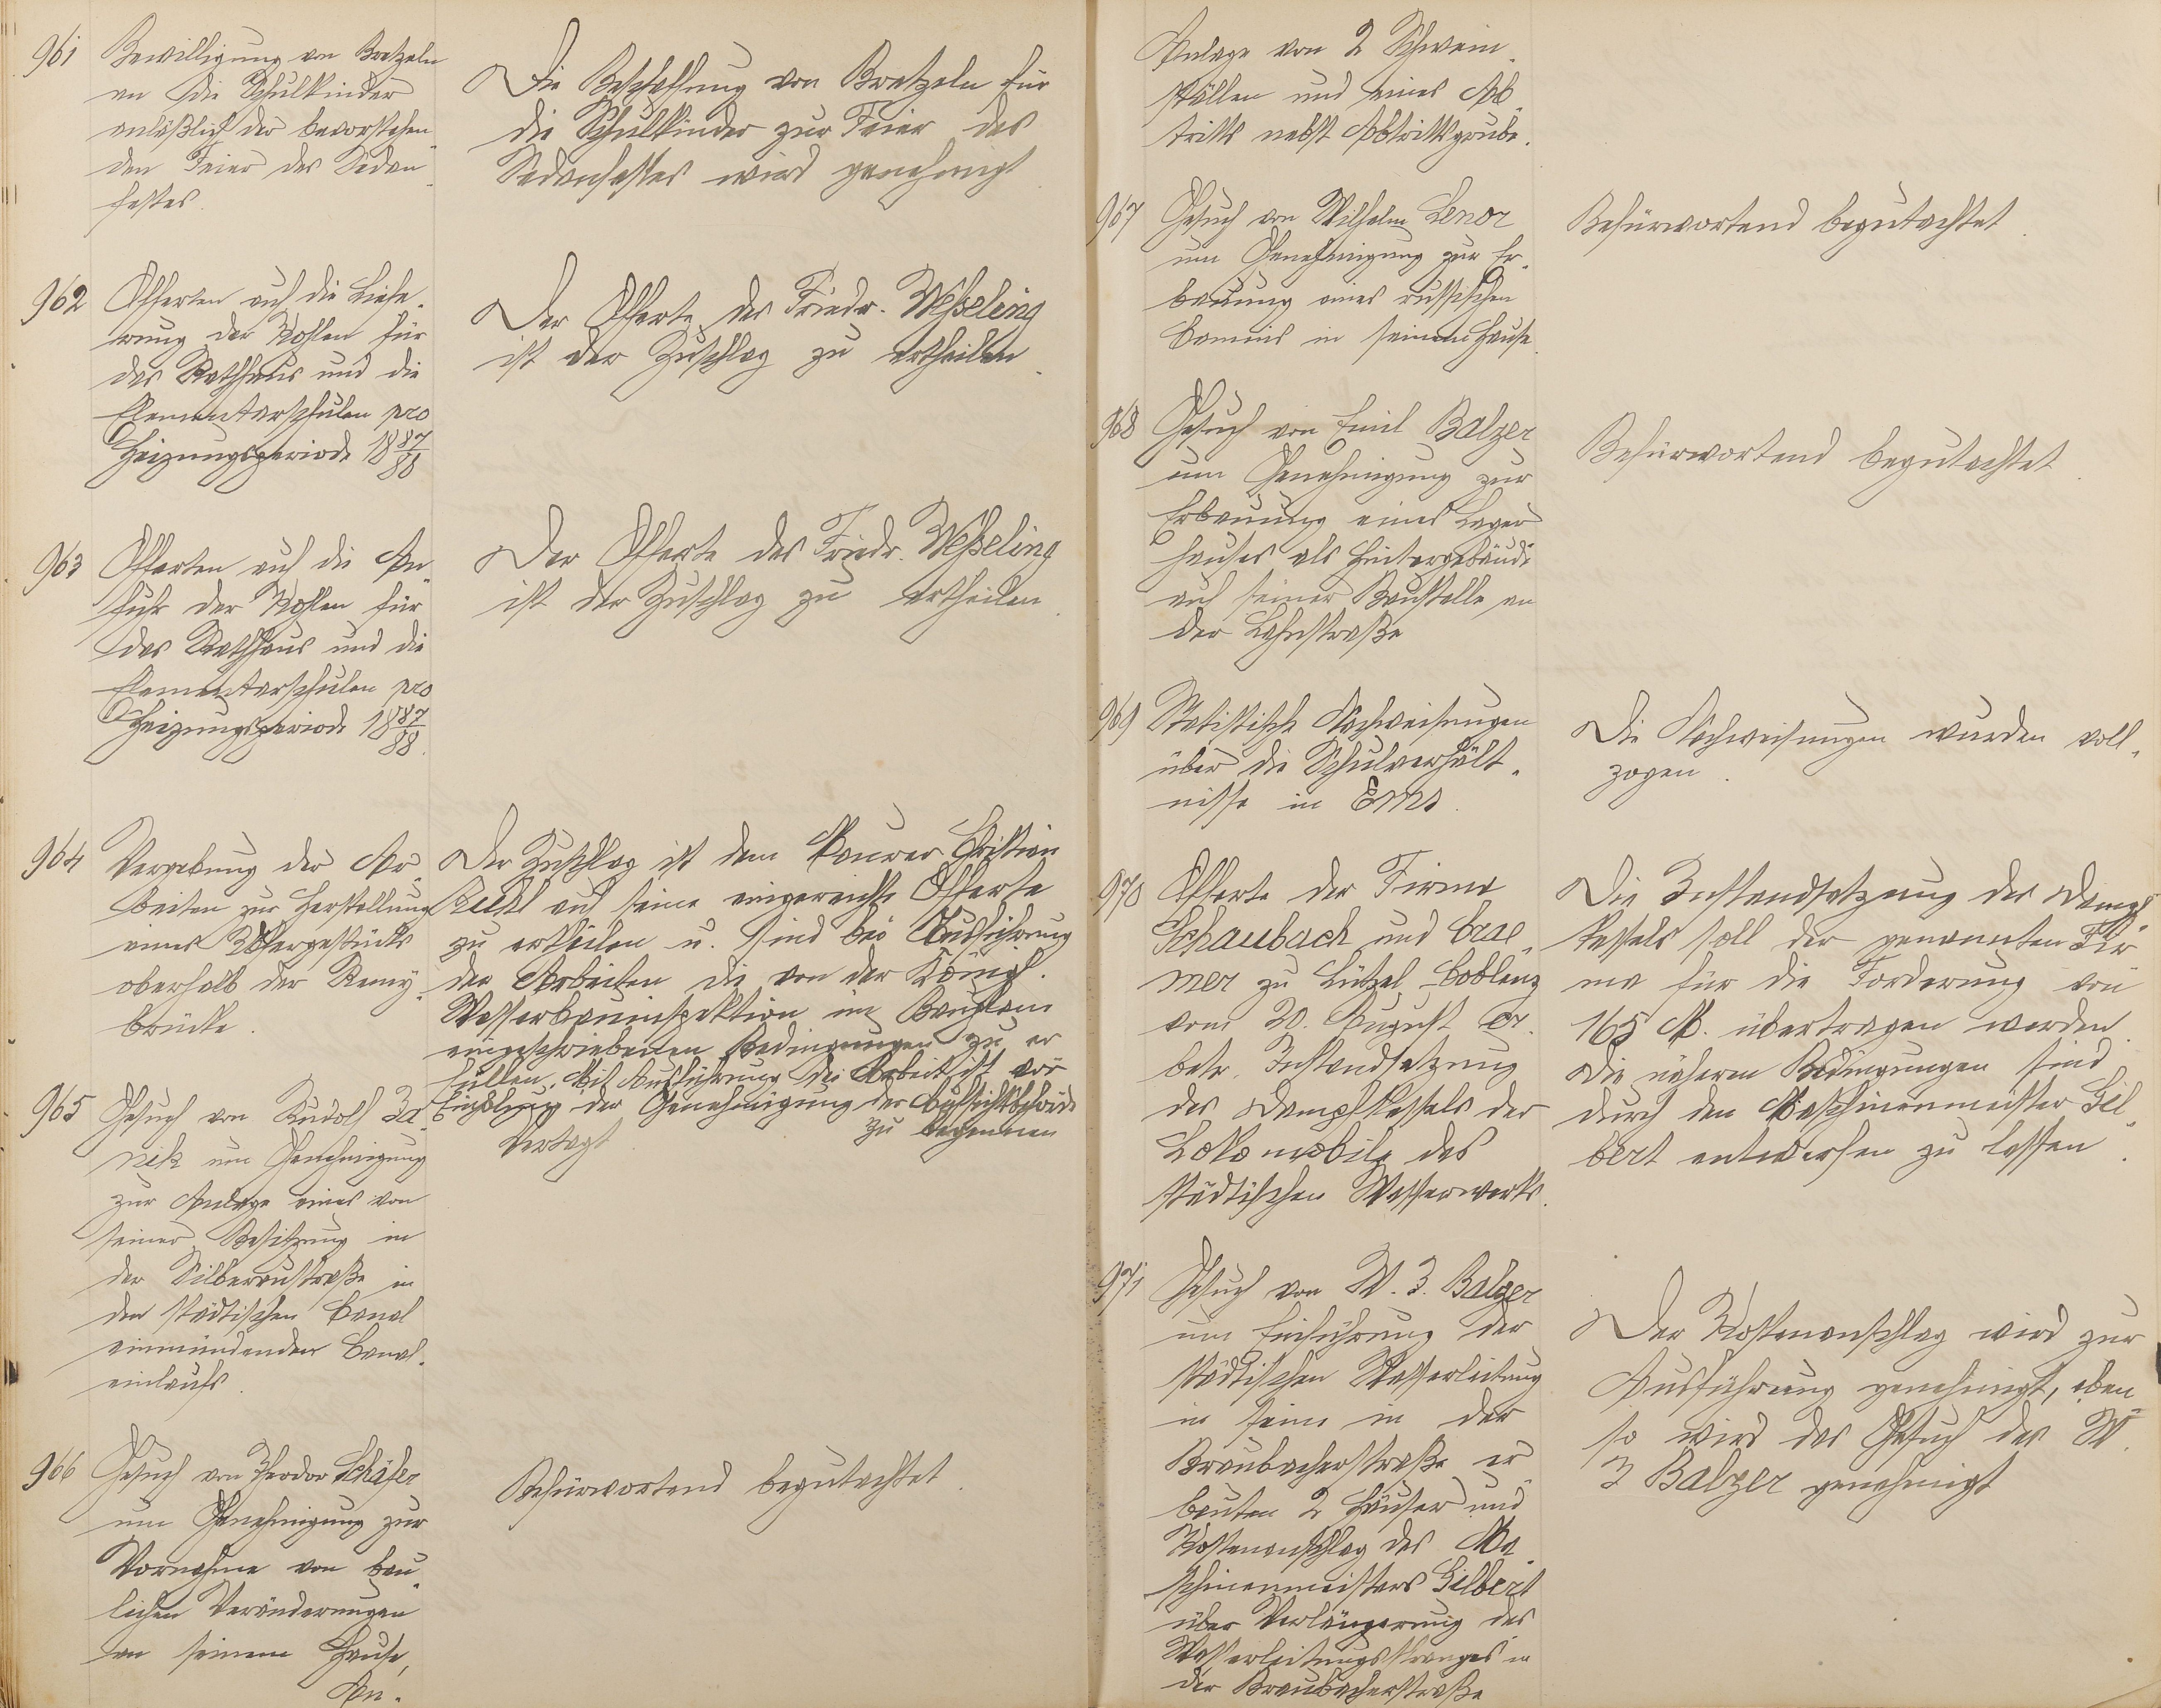 961
Bewilligung von Bretzeln
an die Schulkinder
anläßlich der bevorstehen-
den Feier des Sedan-
festes.
Die Beschaffung von Bretzeln für
die Schulkinder zur Feier des
Sedanfestes wird genehmigt.
962
Offerten auf die Liefe-
rung der Kohlen für
das Rathhaus und die
Elementarschulen pro
Heizungsperiode 1887/88
Der Offerte des Friedr. Weßeling
ist der Zuschlag zu ertheilen.
963
Offerten auf die An-
fuhr der Kohlen für
das Rathhaus und die
Elementarschulen pro
Heizungsperiode 1887/88.
Der Offerte des Friedr. Weßeling
ist der Zuschlag zu ertheilen.
964
Vergebung der Ar-
beiten zur Herstellung
eines Ufergestücks
oberhalb der Remy-
brücke.
Der Zuschlag ist dem Maurer Christian
auf seine eingereichte Offerte
zu ertheilen u. sind bei Ausführung
der Arbeiten die von der Königl.
Wasserbauinspektion im Bauplane
eingeschriebenen Bedingungen zu er
füllen. Mit Ausführung der Arbeit ist vor
der Genehmigung der Aufsichtsbehörde
zu beginnen
965
Gesuch von Rudolf
um Genehmigung
zur Anlage eines von
seiner Besitzung in
der Silberaustraße in
den städtischen Canal
einmündenden Canal-
einlaufs.
Vertagt.
966
Gesuch von Theodor Schäfer
um Genehmigung zur
Vornahme von bau-
lichen Veränderungen
an seinem Hause,
An-
Befürwortend begutachtet.
Anlage von 2 Schwein-
ställen und eines Ab-
tritts nebst Abtrittsgrube.
967
Gesuch von Wilhelm Lenor
um Genehmigung zur Er-
bauung eines russischen
Camins in seinem Hause.
Befürwortend begutachtet.
968
Gesuch von Emil Balzer
um Genehmigung zur
Erbauung eines Lager
hauses als Hintergebäude
auf seiner Baustelle an
der Lahnstraße
Befürwortend begutachtet.
969
Statistische Nachweisungen
über die Schulverhält-
nisse in Ems.
Die Nachweisungen wurden voll-
zogen.
970
Offerte der Firma
Schaubach und Crae-
mer zu Lützel-Coblenz
vom 20. August cr.
betr. Instandsetzung
des Dampfkessels der
Lokomobile des
städtischen Wasserwerks.
Die Instandsetzung des Dampf-
kessels soll der genannten Fir-
ma für die Forderung von
165 M. übertragen werden.
Die näheren Bedingungen sind
durch den Maschinenmeister Gil-
bert entwerfen zu lassen.
971
Gesuch von W. 3. Balzer
um Einführung der
städtischen Wasserleitung
in seine in der
Braubacherstraße er-
bauten 2 Häuser und
Kostenanschlag des Ma-
schinenmeisters Gilbert
über Verlängerung des
Wasserleitungsstranges in
der Braubacherstraße
Der Kostenanschlag wird zur
Ausführung genehmigt, eben-
so wird das Gesuch des W.
3 Balzer genehmigt